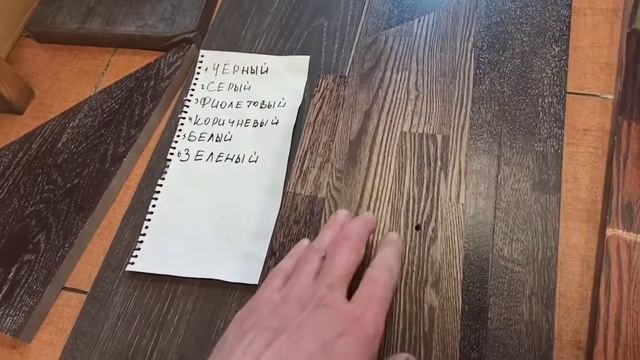 1 ЧЁРНЫЙ
2 СЕРЫЙ
3 ФИОЛЕТОВЫЙ
4 КОРИЧНЕВЫЙ
5 БЕЛЫЙ
6 ЗЕЛЕНЫЙ